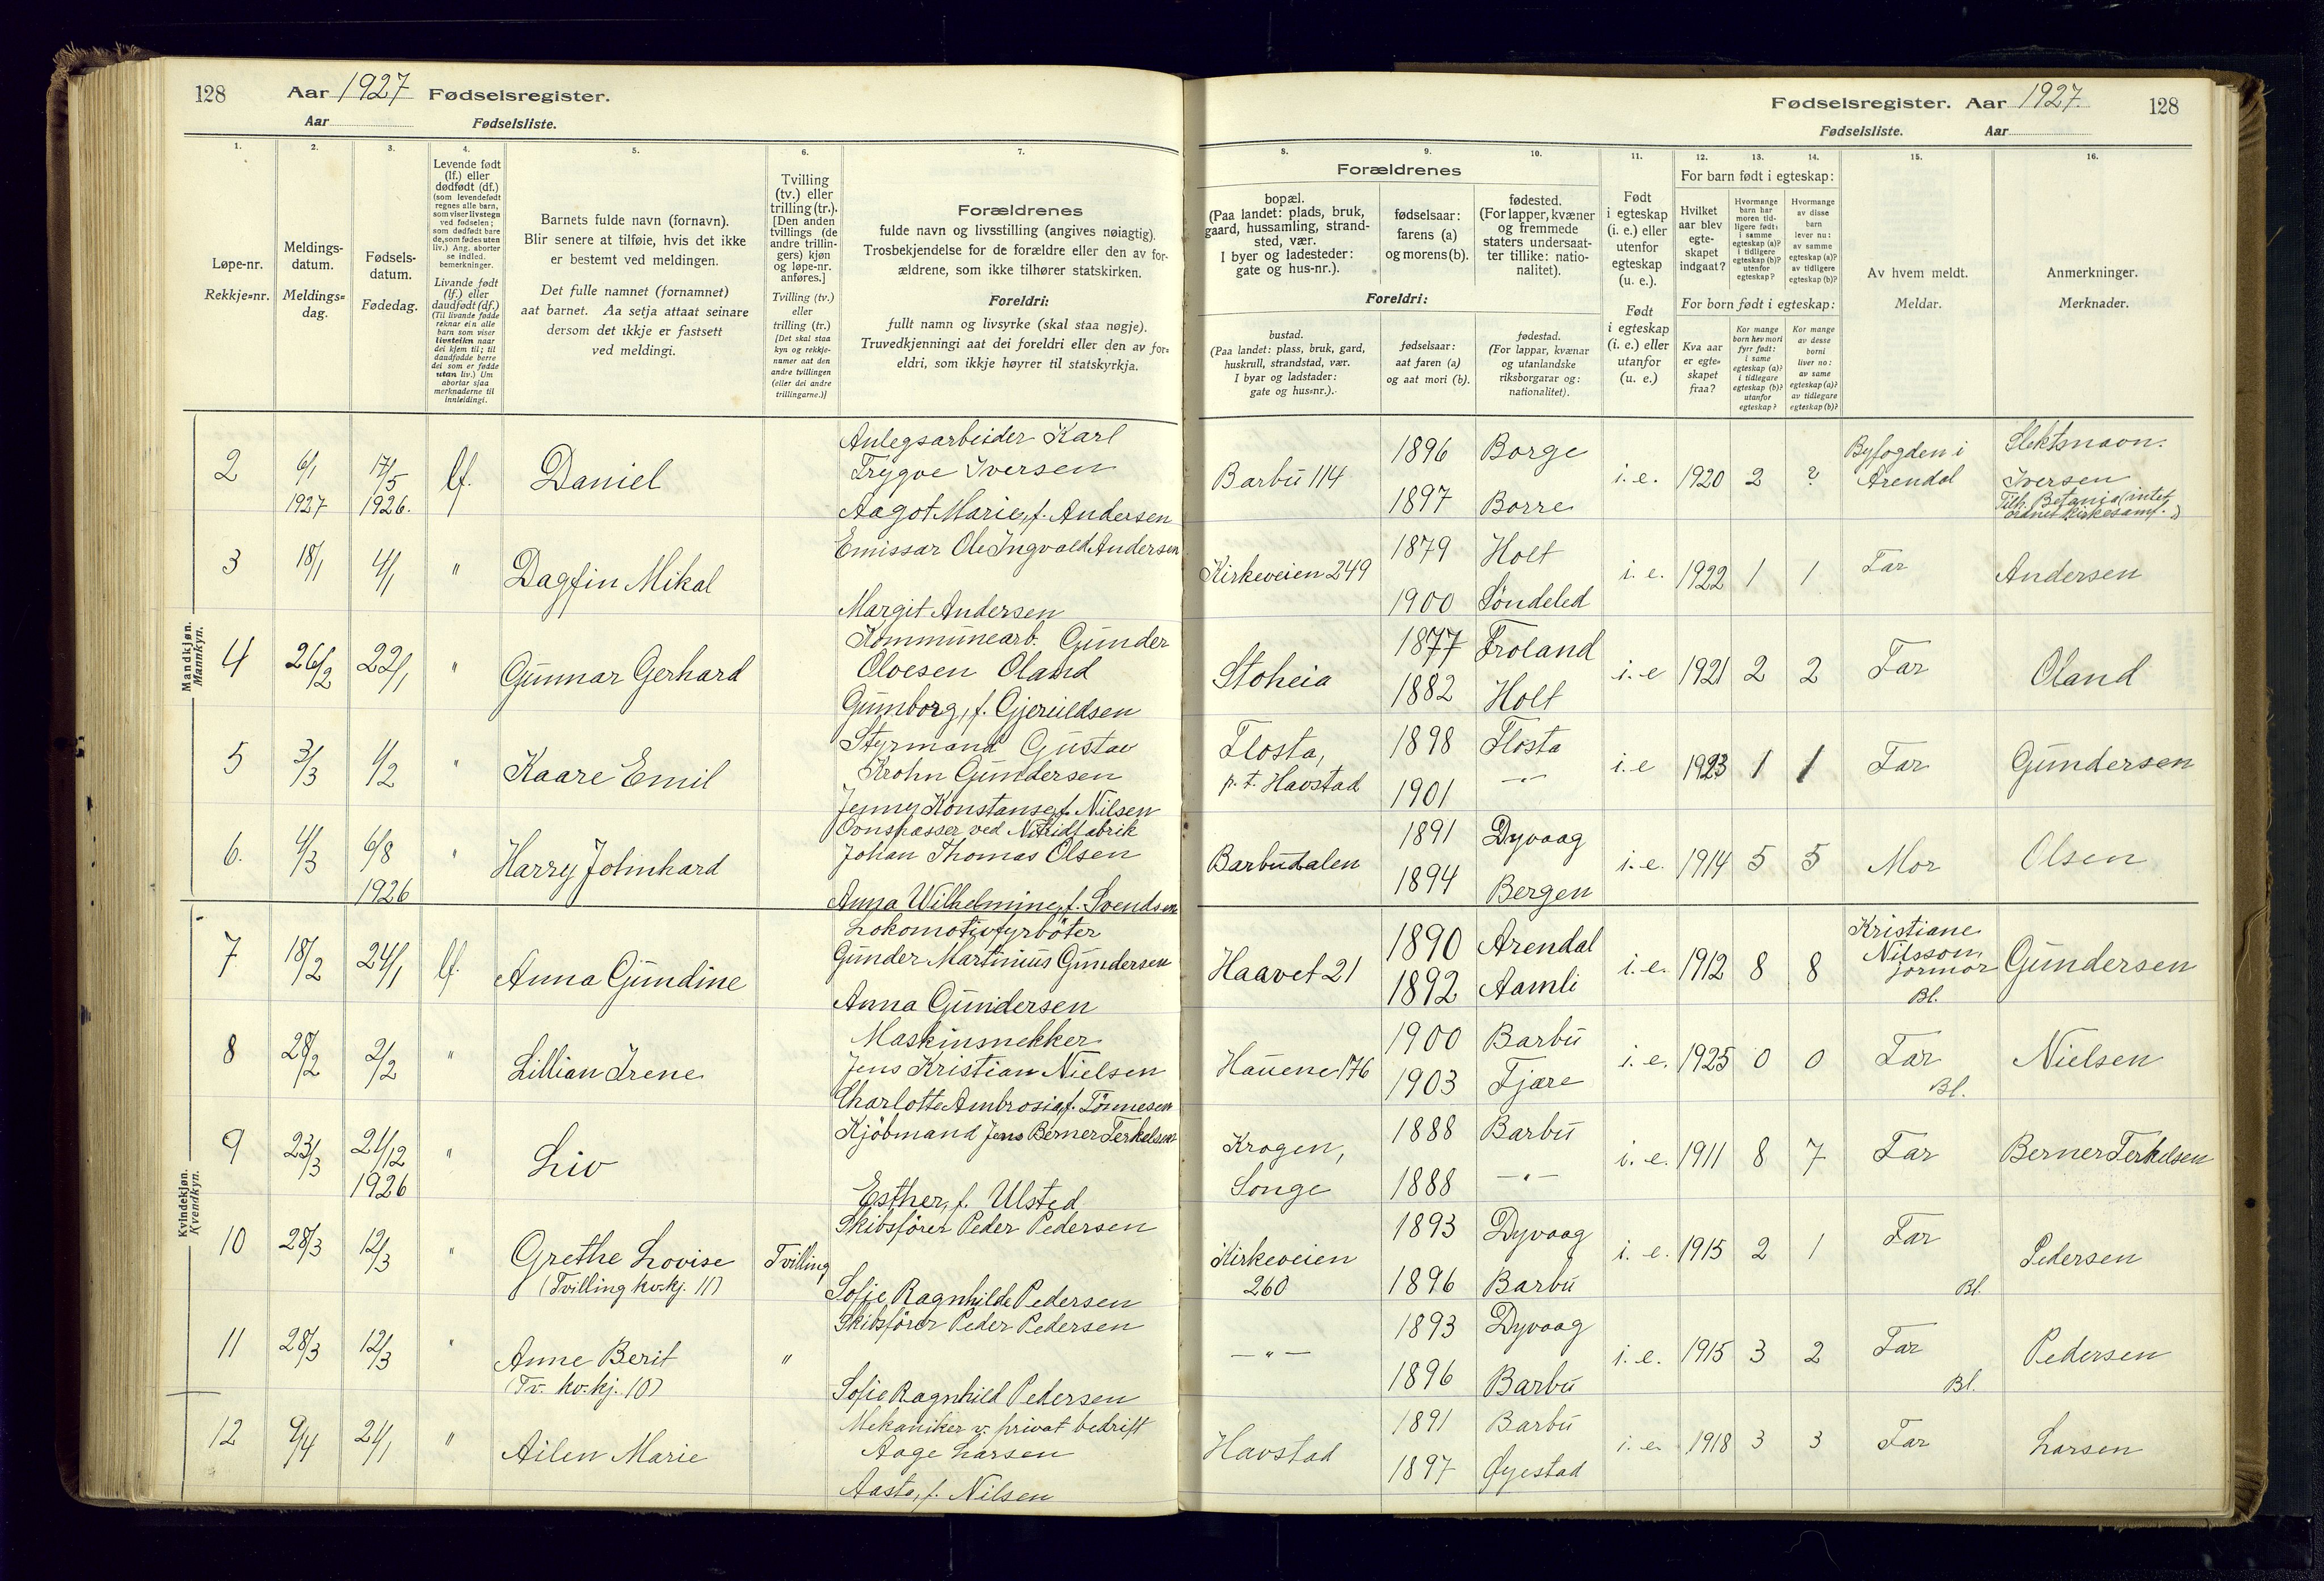 128 Aar 1927 Fødselsregister.
Aar Fødselsliste.
Fødselsregister. Aar 1927. 128
Fødselsliste. Aar
1. 2. 3. 4. 5. 6. 7.
Løpe-nr.
Rekkje=nr.
Meldings-
datum.
Meldings=
dag.
Fødsels-
datum.
Fødedag.
Levende født
(lf.) eller
dødfødt (df.)
(som levendefødt
regnes alle barn,
som viser livstegn
ved fødselen;
som dødfødt bare
de, som fødes uten
liv.) Ang. aborter
se indled.
bemerkninger.
Livande født
(lf.) eller
daudfødt (df.)
(Til livande fødde
reknar ein alle
barn som viser
livsteikn naar
dei kjem til; til
daudfødde berre
dei som er fødde
utan liv.) Um
abortar sjaa
merknaderne til
innleidingi.
Barnets fulde navn (fornavn).
Blir senere at tilføie, hvis det ikke
er bestemt ved meldingen.
Det fulle namnet (fornamnet)
aat barnet. Aa setja attaat seinare
dersom det ikkje er fastsett
ved meldingi.
Tvilling
(tv.) eller
trilling (tr.).
[Den anden
tvillings (de
andre trillin-
gers) kjøn
og løpe-nr.
anføres.]
Tvilling (tv.)
eller
trilling (tr.)
[Det skal staa
kyn og rekkje-
numer aat den
andre tvillingen
(eller dei andre
trillingarne.)]
Forældrenes
fulde navn og livsstilling (angives nøiagtig).
Trosbekjendelse for de forældre eller den av for-
ældrene, som ikke tilhører statskirken.
Foreldri:
fullt namn og livsyrke (skal staa nøgje).
Truvedkjenningi aat dei foreldri eller den av for=
eldri, som ikkje høyrer til statskyrkja.
8. 9. 10. 11. 12. 13. 14. 15. 16.
Forældrenes
bopæl.
(Paa landet: plads, bruk,
gaard, hussamling, strand-
sted, vær.
I byer og ladesteder:
gate og hus-nr.).
fødselsaar:
farens (a)
og morens (b).
fødested.
(For lapper, kvæner
og fremmede
staters undersaat-
ter tillike: natio-
nalitet).
Foreldri:
bustad.
(Paa landet: plass, bruk, gard,
huskrull, strandstad, vær.
I byar og ladstader:
gate og hus=nr.).
fødselsaar:
aat faren (a)
og aat mori (b).
fødestad.
(For lappar, kvænar
og utanlandske
riksborgarar og:
nationalitet).
Født
i egteskap
(i. e.) eller
utenfor
egteskap
(u. e.).
Født
i egteskap
(i. e.) eller
utanfor
egteskap
(u. e.)
For barn født i egteskap:
Hvilket
aar blev
egte-
skapet
indgaat?
Hvormange
barn har
moren tid-
ligere født:
i samme
egteskap (a)?
i tidligere
egteskap (b)?
utenfor
egteskap?
Hvormange
av disse
barn
lever nu:
av samme
egteskap (a)?
av tidligere
egteskap (b)?
For born født i egteskap:
Kva aar
er egte=
skapet
fraa?
Kor mange
born hev mori
fyrr født:
i same
egteskap (a)?
i tidlegare
egteskap (b)?
utanfor
egteskap?
Kor mange
av desse
borni
liver no:
av same
egteskap (a)?
av tidlegare
egteskap (b)?
Av hvem meldt.
Meldar.
Anmerkninger.
Merknader.
Mandkjøn.
Mannkyn.
2 6/1 1927 17/5 1926. lf. Daniel
Anlegsarbeider Karl
Trygve Iversen
Aagot Marie, f. Andersen
Barbu 114 1896 Borge
1897 Borre
i. e. 1920 2 ? Byfogden i
Arendal
Slektsnavn:
Iversen
Tilh. Betania (intet
ordnet kirkesamf.)
3 18/1 4/1 " Dagfin Mikal
Emissær Ole Ingvald Andersen
Margit Andersen
Kirkeveien 249 1879 Holt
1900 Søndeled
i. e. 1922 1 1 Far Andersen
4 26/2 22/1 " Gunnar Gerhard
Kommunearb. Gunder
Olvesen Oland
Gunborg, f. Gjeruldsen
Stoheia 1877 Froland
1882 Holt
i. e 1921 2 2 Far Oland
5 3/3 1/2 " Kaare Emil
Styrmand Gustav
Krohn Gundersen
Jenny Konstanse, f. Nilsen
Flosta,
p. t. Havstad
1898 Flosta
1901 — " —
i. e 1923 1 1 Far Gundersen
6. 4/3 6/8 1926 " Harry Johnhard
Ovnspasser ved Nitridfabrik
Johan Thomas Olsen
Anna Wilhelmine, f. Svendsen
Barbudalen 1891 Dyvaag
1894 Bergen
i. e. 1914 5 5 Mor Olsen
Kvindekjøn.
Kvendkyn.
7 18/2 24/1 lf. Anna Gundine
Lokomotivfyrbøter
Gunder Martinius Gundersen
Anna Gundersen
Haavet 21 1890 Arendal
1892 Aamli
i. e. 1912 8 8 Kristiane
Nilsson,
jormor
Bl.
Gundersen
8 28/2 2/2 " Lillian Irene
Maskinsnekker
Jens Kristian Nielsen
Charlotte Ambrosia, f. Tønnesen
Hauene 176 1900 Barbu
1903 Fjære
i. e. 1925 0 0 Far
Bl.
Nielsen
9 23/3 21/12 1926 " Liv
Kjøbmand Jens Berner Terkelsen
Esther, f. Ulsted
Krogen,
Songe
1888 Barbu
1888 — " —
i. e. 1911 8 7 Far Berner Terkelsen
10 28/3 12/3 " Grethe Lovise
(Tvilling kv.kj. 11)
Tvilling
Skibsfører Peder Pedersen
Sofie Ragnhilde Pedersen
Kirkeveien
260
1893 Dyvaag
1896 Barbu
i. e. 1915 2 1 Far
Bl.
Pedersen
11 28/3 12/3 " Anne Berit
(Tv. kv.kj. 10)
"
Skibsfører Peder Pedersen
Sofie Ragnhild Pedersen
— " — 1893 Dyvaag
1896 Barbu
i. e. 1915 3 2 Far
Bl.
Pedersen
12 9/4 21/1 " Ailen Marie
Mekaniker v. privat bedrift
Aage Larsen
Aasta, f. Nilsen
Havstad 1891 Barbu
1897 Øyestad
i. e. 1918 3 3 Far Larsen